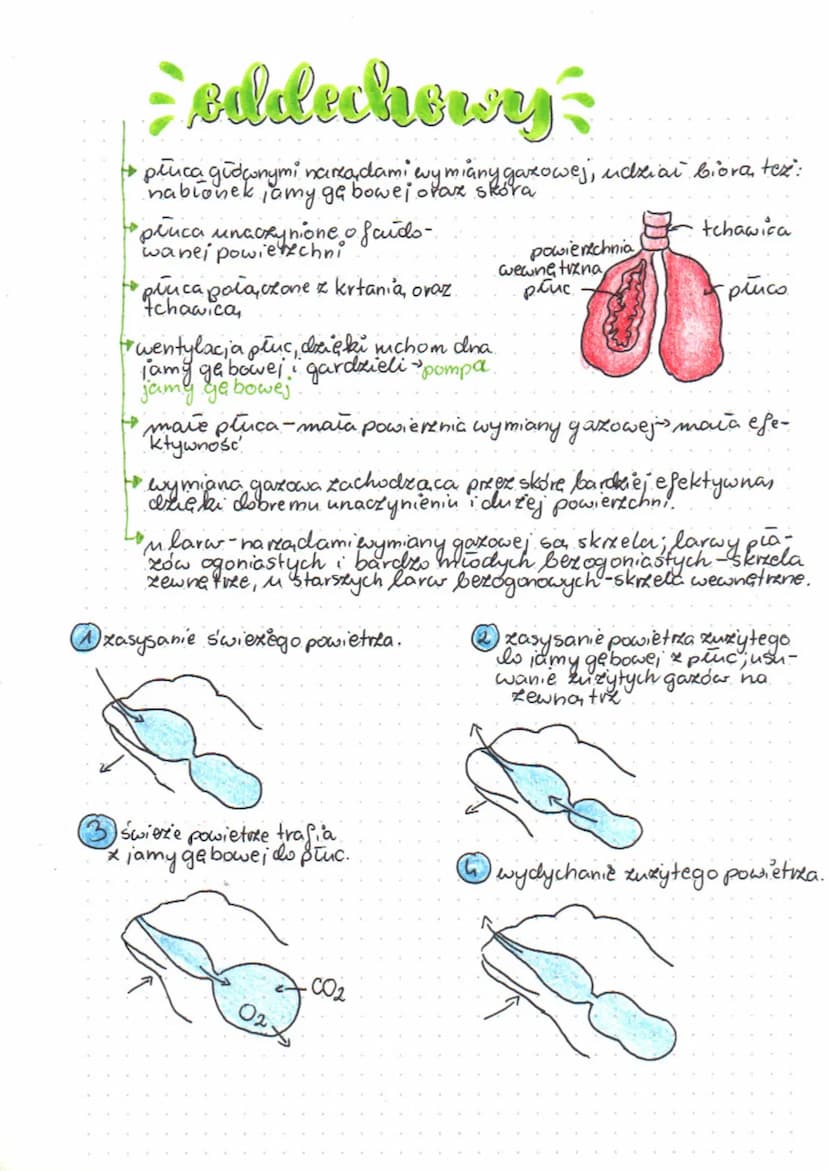 oddechowy
płuca głównymi narządami wymiany gazowej, udział biorą też:
nabłonek jamy gębowej oraz skóra
płuca unaczynione o fałdo-
wanej powierzchni
płuca połączone z krtanią oraz
tchawicą
wentylacja płuc, dzięki ruchom dna
jamy gębowej i gardzieli → pompa
jamy gębowej
małe płuca - mała powierznia wymiany gazowej → mała efe-
ktywność
wymiana gazowa zachodząca przez skórę bardziej efektywna,
dzięki dobremu unaczynieniu i dużej powierzchni.
u larw - narządami wymiany gazowej są skrzela; larwy pła-
zów ogoniastych i bardzo młodych bezogoniastych - skrzela
zewnętrze, u starszych larw bezogonowych - skrzela wewnętrzne.
tchawica
powierzchnia
wewnętrzna
płuc
płuco
1 zasysanie świeżego powietrza.
2 zasysanie powietrza zużytego
do jamy gębowej z płuc; usu-
wanie zużytych gazów na
zewnątrz
3 świeże powietrze trafia
z jamy gębowej do płuc.
4 wydychanie zużytego powietrza.
CO2
O2